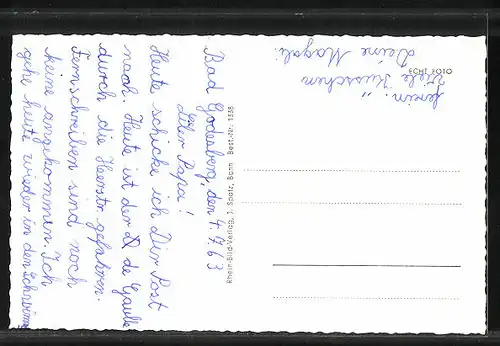 Bad Godesberg, den 4.7.63
Lieber Papa!
Heute schicke ich Dir Post
nach. Heute ist der de Gaulle
durch die Herrstr. gefahren.
Fernschreiben sind noch
keine angekommen. Ich
gehe heute wieder in den Schwimm
verein.
Viele Küsschen
Deine Magali.
Rhein-Bild-Verlag, J. Spatz, Bonn Best.-Nr. 1338